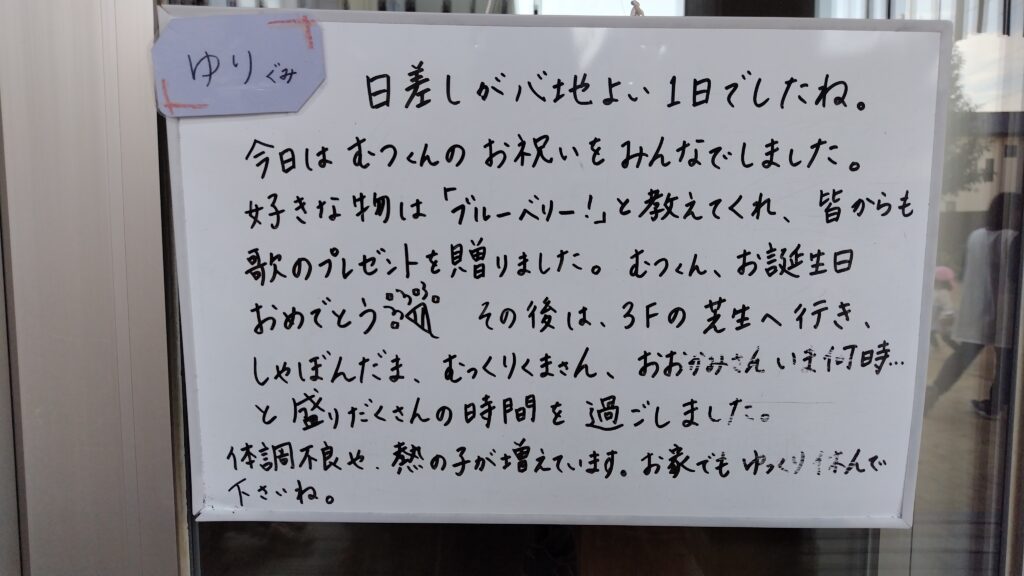 ゆりぐみ
日差しが心地よい1日でしたね。
今日はむつくんのお祝いをみんなでしました。
好きな物は「ブルーベリー!」と教えてくれ、皆からも
歌のプレゼントを贈りました。むつくん、お誕生日
おめでとう その後は、3Fの芝生へ行き、
しゃぼんだま、むっくりくまさん、おおかみさんいま何時…
と盛りだくさんの時間を過ごしました。
体調不良や、熱の子が増えています。お家でもゆっくり休んで
下さいね。